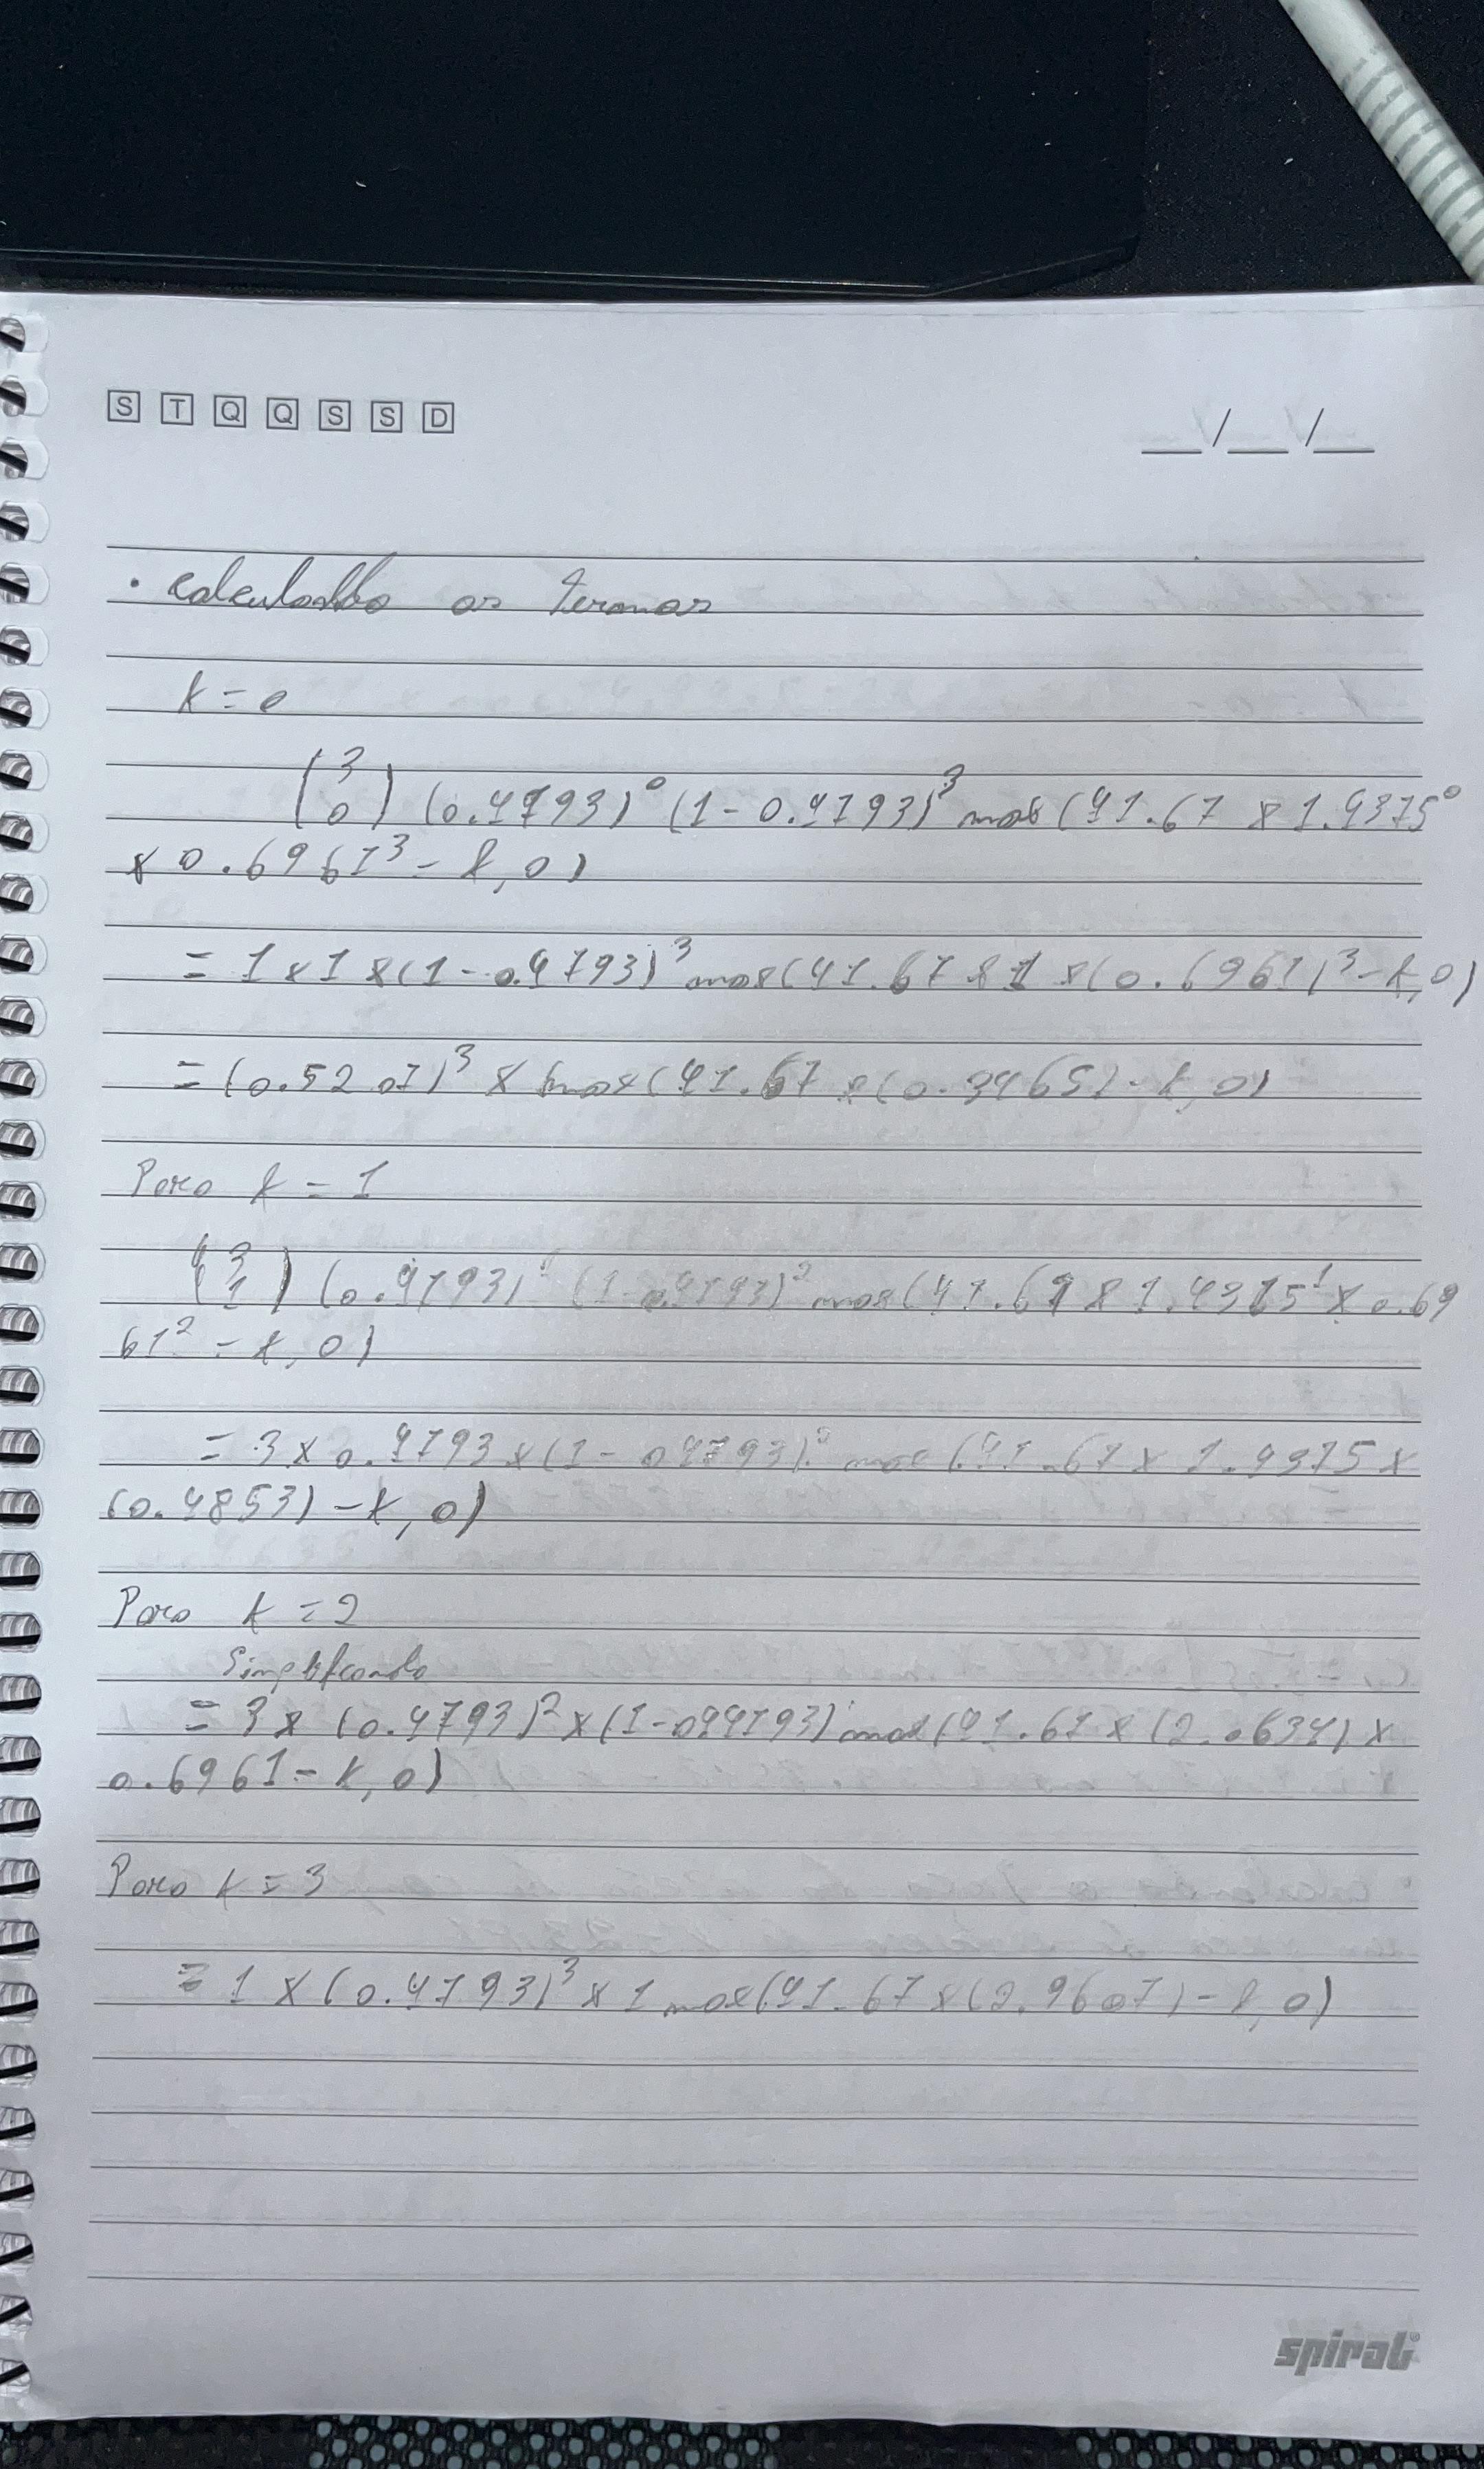 S T Q Q S S D
__/__/__
• calculando os termos
k = 0
(3 0) (0.4793)⁰ (1 - 0.4793)³ max (41.67 x 1.4375⁰
x 0.6961³ - k, 0)
= 1 x 1 x (1 - 0.4793)³ max (41.67 x 1 x (0.6961)³ - k, 0)
= (0.5207)³ x max (41.67 x (0.3465) - k, 0)
Para k = 1
(3 1) (0.4793)¹ (1 - 0.4793)² max (41.67 x 1.4375¹ x 0.69
61² - k, 0)
= 3 x 0.4793 x (1 - 04793)² max (41.67 x 1.4375 x
(0.4853) - k, 0)
Para k = 2
Simplificando
= 3 x (0.4793)² x (1 - 044793) max (41.67 x (2.0634) x
0.6961 - k, 0)
Para k = 3
= 1 x (0.4793)³ x 1 max (41.67 x (2.9607) - k, 0)
spiral